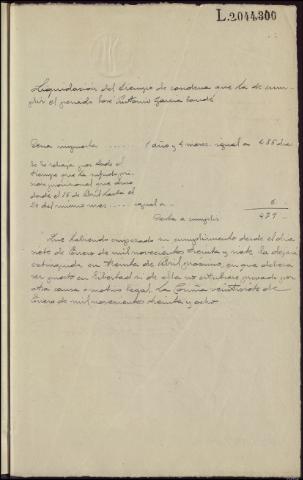 L.2044.300
Liquidación del tiempo de condena que ha de cum-
plir el penado Jose Antonio Garcia
Pena impuesta ..... 1 año y 4 meses igual a 485 dias
Se le rebaja por todo el
tiempo que ha sufrido pri-
sion provisional que fue
desde el 18 de Abril hasta el
24 del mismo mes ..... igual a - 6
Resta a cumplir 479 -
Que habiendo empezado su cumplimiento desde el dia
siete de Enero de mil novecientos treinta y siete la dejará
extinguida en treinta de Abril proximo, en que deberá
ser puesto en libertad si de ella no estuviere privado por
otra causa o motivo legal. La Coruña veintisiete de
Enero de mil novecientos treinta y ocho